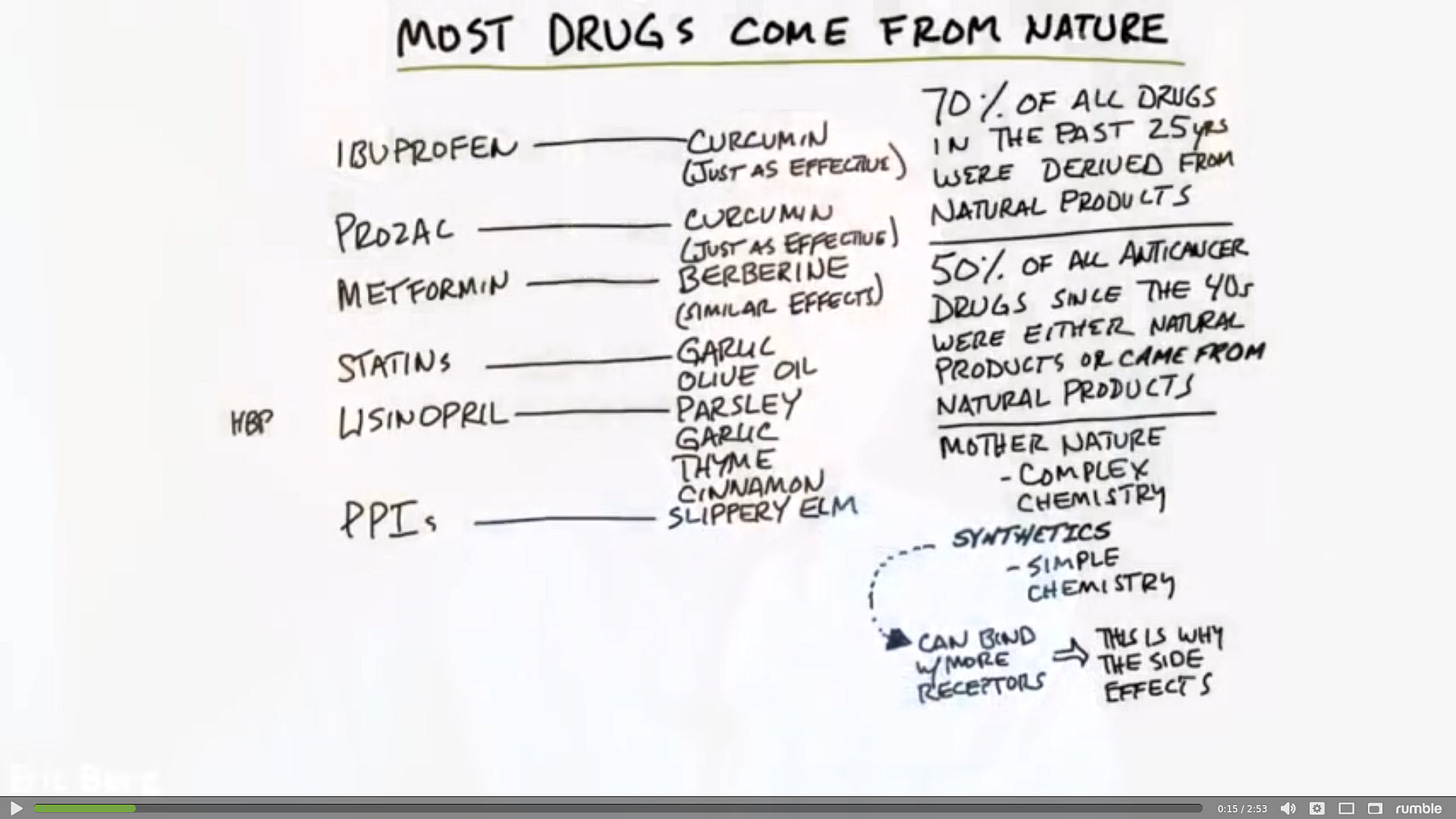 MOST DRUGS COME FROM NATURE
IBUPROFEN
CURCUMIN
(JUST AS EFFECTIVE)
PROZAC
CURCUMIN
(JUST AS EFFECTIVE)
METFORMIN
BERBERINE
(SIMILAR EFFECTS)
STATINS
GARLIC
OLIVE OIL
HBP
LISINOPRIL
PARSLEY
GARLIC
THYME
CINNAMON
PPIs
SLIPPERY ELM
70% OF ALL DRUGS
IN THE PAST 25yrs
WERE DERIVED FROM
NATURAL PRODUCTS
50% OF ALL ANTICANCER
DRUGS SINCE THE 40s
WERE EITHER NATURAL
PRODUCTS OR CAME FROM
NATURAL PRODUCTS
MOTHER NATURE
- COMPLEX
CHEMISTRY
SYNTHETICS
- SIMPLE
CHEMISTRY
CAN BIND
W/ MORE
RECEPTORS
⇒ THIS IS WHY
THE SIDE
EFFECTS
Eric Berg
0:15 / 2:53
rumble